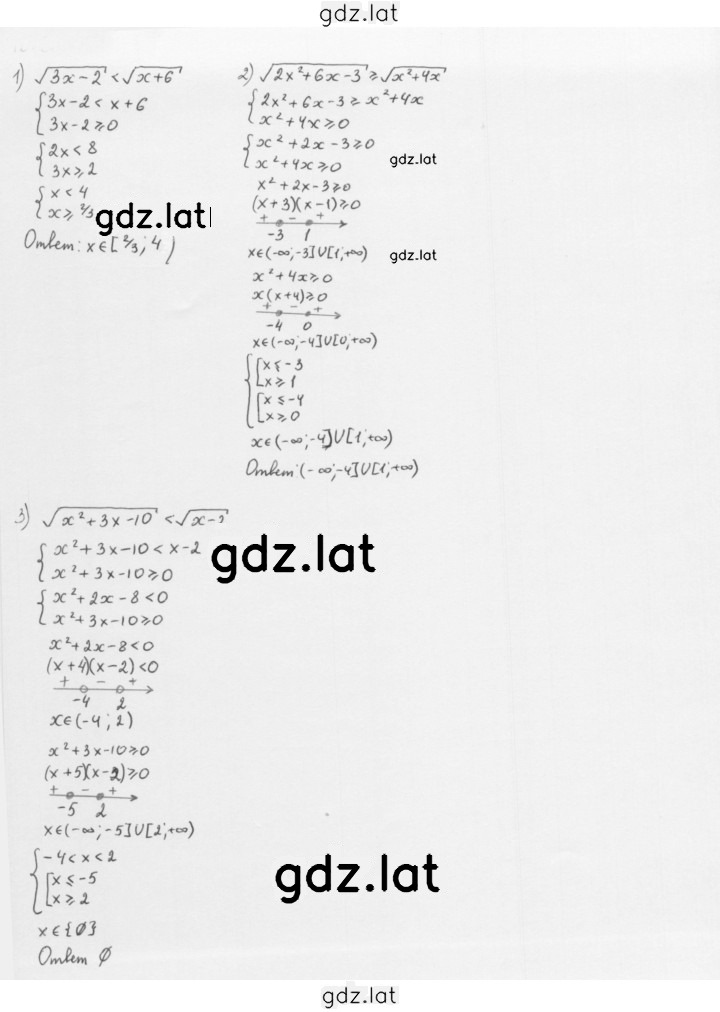 gdz.lat
1) √(3x-2) < √(x+6)
{3x-2 < x+6
3x-2 ⩾ 0
{2x < 8
3x ⩾ 2
{x < 4
x ⩾ 2/3
gdz.lat
Ответ: x∈[2/3; 4)
2) √(2x²+6x-3) ⩾ √(x²+4x)
{2x²+6x-3 ⩾ x²+4x
x²+4x ⩾ 0
{x²+2x-3 ⩾ 0
x²+4x ⩾ 0
gdz.lat
x²+2x-3 ⩾ 0
(x+3)(x-1) ⩾ 0
+ - +
-3 1
x∈(-∞;-3]U[1;+∞)
gdz.lat
x²+4x ⩾ 0
x(x+4) ⩾ 0
+ - +
-4 0
x∈(-∞;-4]U[0;+∞)
{[x ⩽ -3
x ⩾ 1
[x ⩽ -4
x ⩾ 0
x∈(-∞;-4]U[1;+∞)
Ответ: (-∞;-4]U[1;+∞)
3) √(x²+3x-10) < √(x-
gdz.lat
{x²+3x-10 < x-2
x²+3x-10 ⩾ 0
{x²+2x-8 < 0
x²+3x-10 ⩾ 0
x²+2x-8 < 0
(x+4)(x-2) < 0
+ - +
-4 2
x∈(-4; 2)
x²+3x-10 ⩾ 0
(x+5)(x-2) ⩾ 0
+ - +
-5 2
x∈(-∞;-5]U[2;+∞)
{-4 < x < 2
[x ⩽ -5
x ⩾ 2
gdz.lat
x∈{∅}
Ответ ∅
gdz.lat